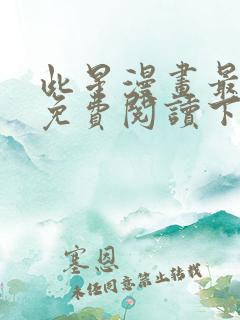 此星漫畫最
免費閱讀下
塞恩
未经同意禁止转载